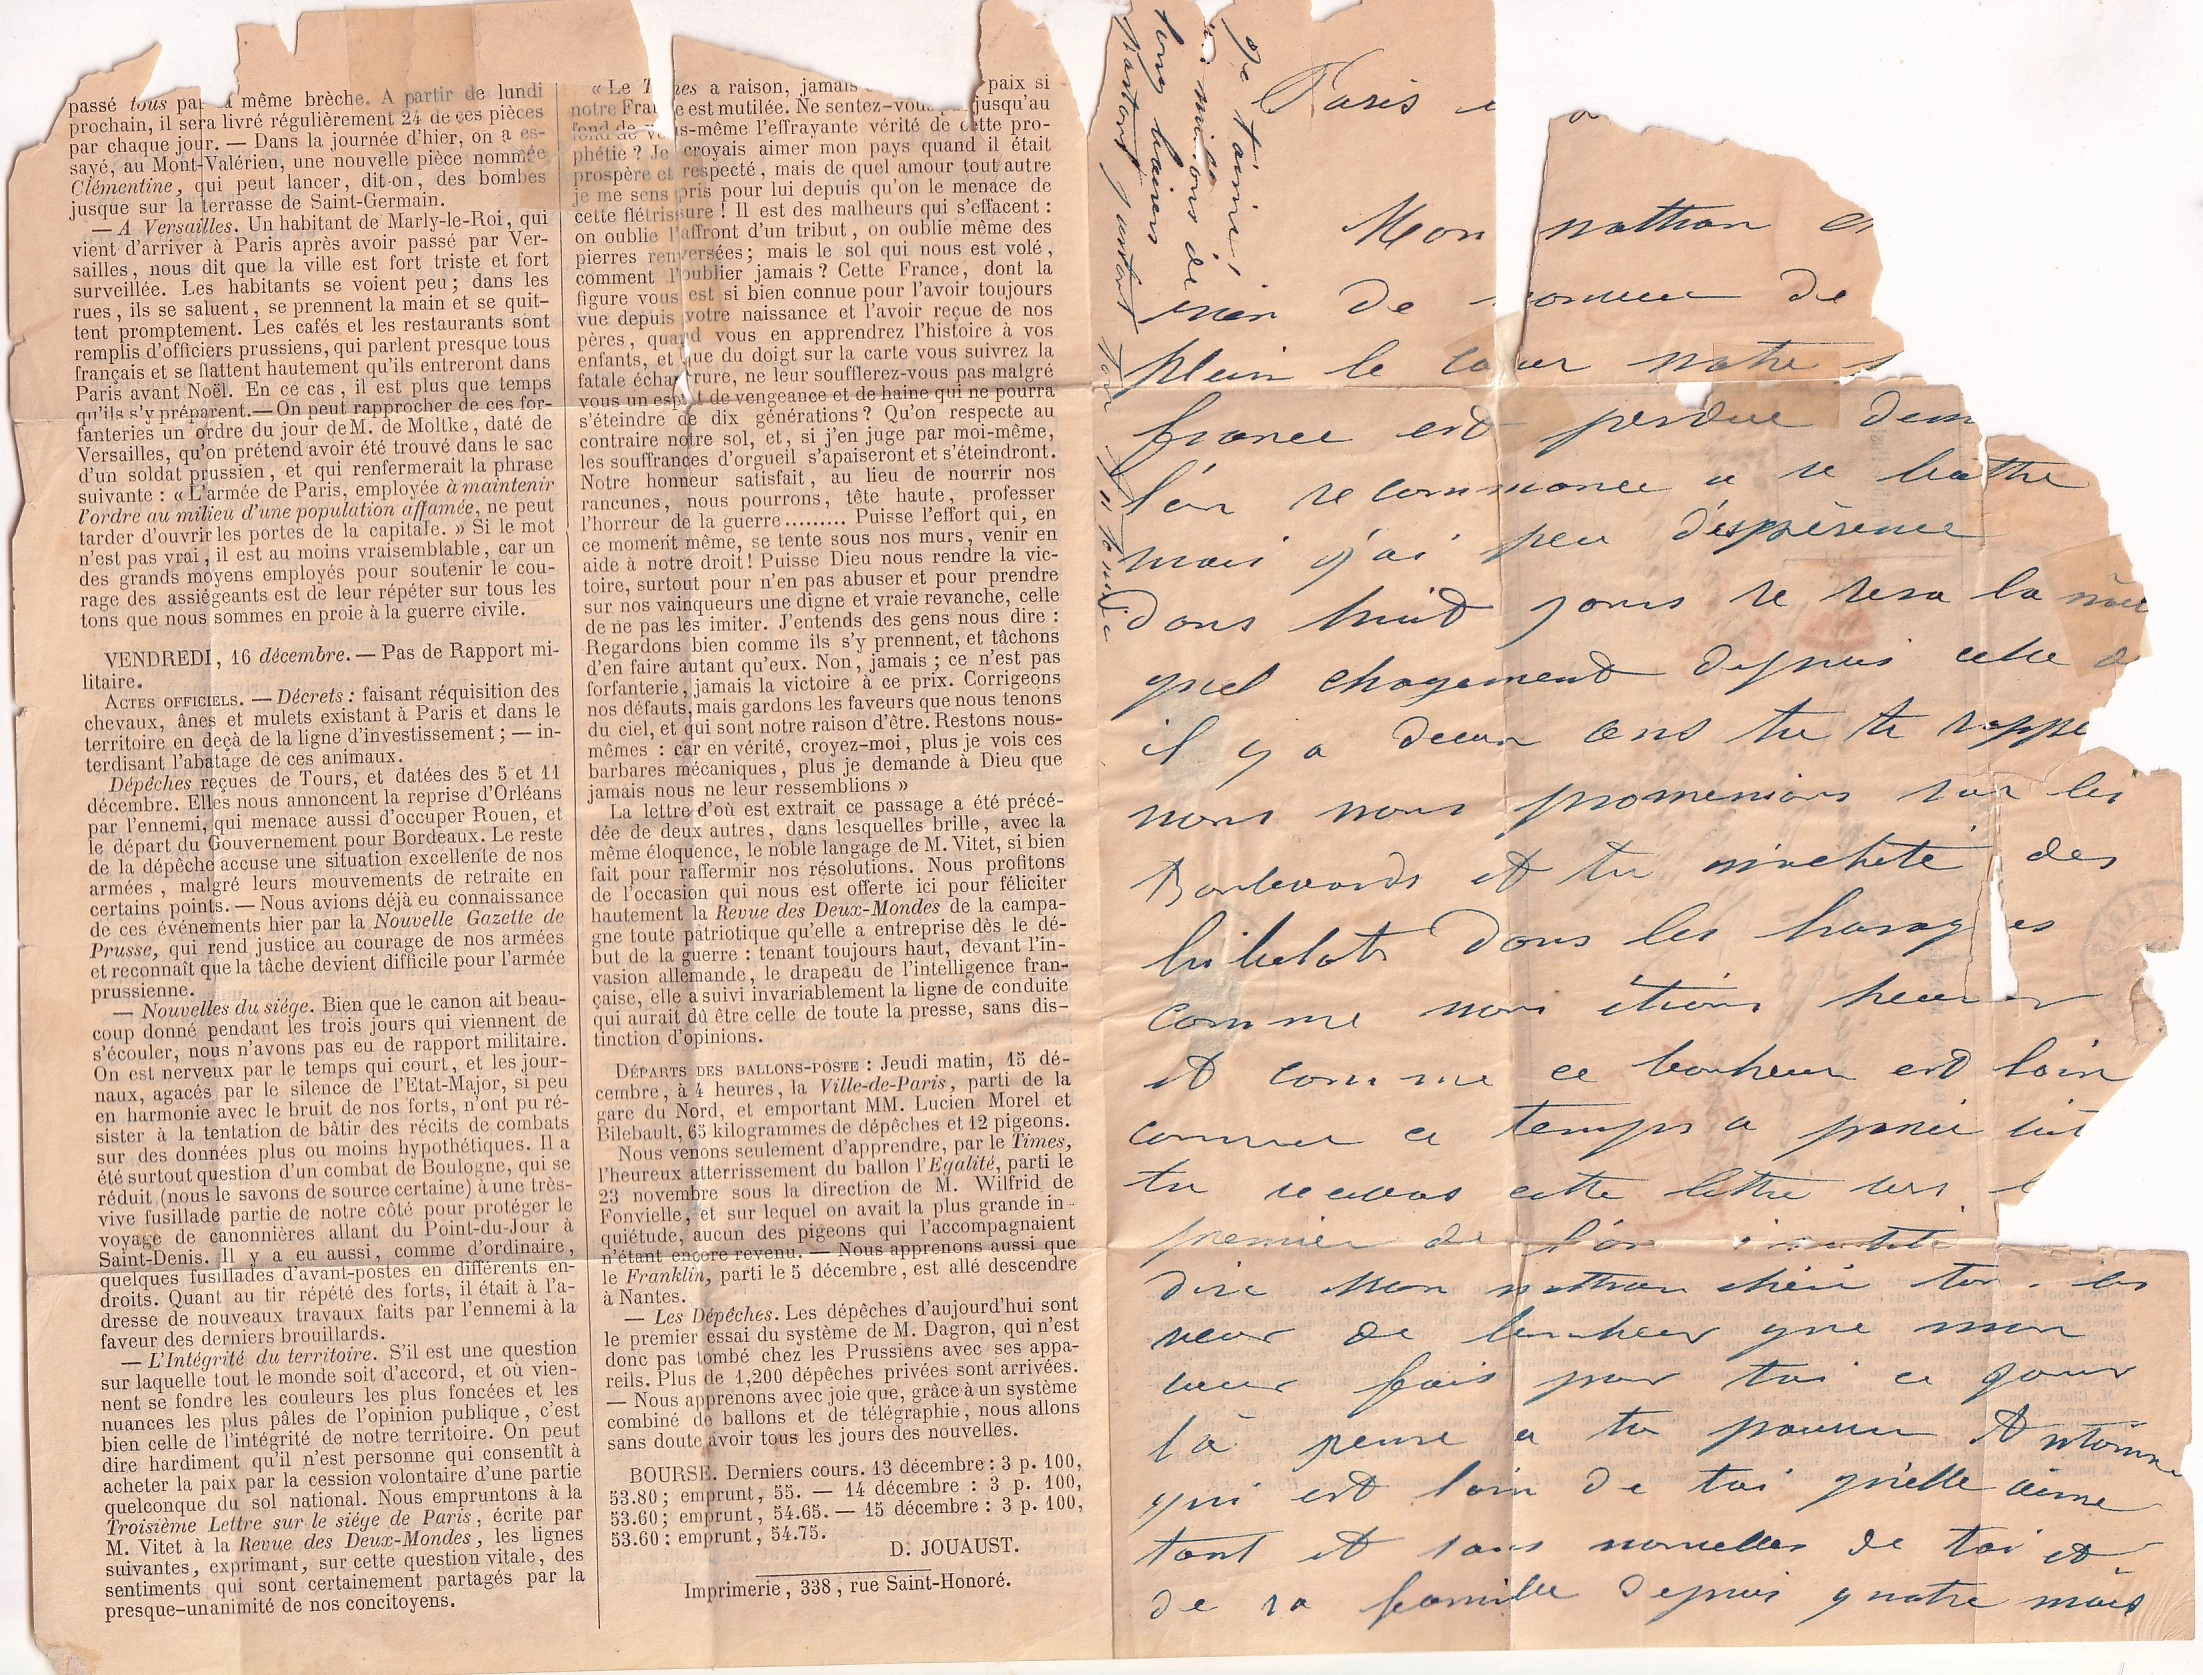 passé tous par la même brèche. A partir de lundi
prochain, il sera livré régulièrement 24 de ces pièces
par chaque jour. — Dans la journée d'hier, on a es-
sayé, au Mont-Valérien, une nouvelle pièce nommée
Clémentine, qui peut lancer, dit-on, des bombes
jusque sur la terrasse de Saint-Germain.
— A Versailles. Un habitant de Marly-le-Roi, qui
vient d'arriver à Paris après avoir passé par Ver-
sailles, nous dit que la ville est fort triste et fort
surveillée. Les habitants se voient peu; dans les
rues, ils se saluent, se prennent la main et se quit-
tent promptement. Les cafés et les restaurants sont
remplis d'officiers prussiens, qui parlent presque tous
français et se flattent hautement qu'ils entreront dans
Paris avant Noël. En ce cas, il est plus que temps
qu'ils s'y préparent. — On peut rapprocher de ces for-
fanteries un ordre du jour de M. de Moltke, daté de
Versailles, qu'on prétend avoir été trouvé dans le sac
d'un soldat prussien, et qui renfermerait la phrase
suivante : « L'armée de Paris, employée à maintenir
l'ordre au milieu d'une population affamée, ne peut
tarder d'ouvrir les portes de la capitale. » Si le mot
n'est pas vrai, il est au moins vraisemblable, car un
des grands moyens employés pour soutenir le cou-
rage des assiégeants est de leur répéter sur tous les
tons que nous sommes en proie à la guerre civile.
VENDREDI, 16 décembre. — Pas de Rapport mi-
litaire.
ACTES OFFICIELS. — Décrets : faisant réquisition des
chevaux, ânes et mulets existant à Paris et dans le
territoire en deçà de la ligne d'investissement; — in-
terdisant l'abatage de ces animaux.
Dépêches reçues de Tours, et datées des 5 et 11
décembre. Elles nous annoncent la reprise d'Orléans
par l'ennemi, qui menace aussi d'occuper Rouen, et
le départ du Gouvernement pour Bordeaux. Le reste
de la dépêche accuse une situation excellente de nos
armées, malgré leurs mouvements de retraite en
certains points. — Nous avions déjà eu connaissance
de ces événements hier par la Nouvelle Gazette de
Prusse, qui rend justice au courage de nos armées
et reconnaît que la tâche devient difficile pour l'armée
prussienne.
— Nouvelles du siége. Bien que le canon ait beau-
coup donné pendant les trois jours qui viennent de
s'écouler, nous n'avons pas eu de rapport militaire.
On est nerveux par le temps qui court, et les jour-
naux, agacés par le silence de l'Etat-Major, si peu
en harmonie avec le bruit de nos forts, n'ont pu ré-
sister à la tentation de bâtir des récits de combats
sur des données plus ou moins hypothétiques. Il a
été surtout question d'un combat de Boulogne, qui se
réduit (nous le savons de source certaine) à une très-
vive fusillade partie de notre côté pour protéger le
voyage de canonnières allant du Point-du-Jour à
Saint-Denis. Il y a eu aussi, comme d'ordinaire,
quelques fusillades d'avant-postes en différents en-
droits. Quant au tir répété des forts, il était à l'a-
dresse de nouveaux travaux faits par l'ennemi à la
faveur des derniers brouillards.
— L'Intégrité du territoire. S'il est une question
sur laquelle tout le monde soit d'accord, et où vien-
nent se fondre les couleurs les plus foncées et les
nuances les plus pâles de l'opinion publique, c'est
bien celle de l'intégrité de notre territoire. On peut
dire hardiment qu'il n'est personne qui consentît à
acheter la paix par la cession volontaire d'une partie
quelconque du sol national. Nous empruntons à la
Troisième Lettre sur le siége de Paris, écrite par
M. Vitet à la Revue des Deux-Mondes, les lignes
suivantes, exprimant, sur cette question vitale, des
sentiments qui sont certainement partagés par la
presque-unanimité de nos concitoyens.
« Le Times a raison, jamais paix si
notre France est mutilée. Ne sentez-vous pas jusqu'au
fond de vous-même l'effrayante vérité de cette pro-
phétie ? Je croyais aimer mon pays quand il était
prospère et respecté, mais de quel amour tout autre
je me sens pris pour lui depuis qu'on le menace de
cette flétrissure ! Il est des malheurs qui s'effacent :
on oublie l'affront d'un tribut, on oublie même des
pierres renversées; mais le sol qui nous est volé,
comment l'oublier jamais ? Cette France, dont la
figure vous est si bien connue pour l'avoir toujours
vue depuis votre naissance et l'avoir reçue de nos
pères, quand vous en apprendrez l'histoire à vos
enfants, et que du doigt sur la carte vous suivrez la
fatale échancrure, ne leur soufflerez-vous pas malgré
vous un esprit de vengeance et de haine qui ne pourra
s'éteindre de dix générations ? Qu'on respecte au
contraire notre sol, et, si j'en juge par moi-même,
les souffrances d'orgueil s'apaiseront et s'éteindront.
Notre honneur satisfait, au lieu de nourrir nos
rancunes, nous pourrons, tête haute, professer
l'horreur de la guerre......... Puisse l'effort qui, en
ce moment même, se tente sous nos murs, venir en
aide à notre droit ! Puisse Dieu nous rendre la vic-
toire, surtout pour n'en pas abuser et pour prendre
sur nos vainqueurs une digne et vraie revanche, celle
de ne pas les imiter. J'entends des gens nous dire :
Regardons bien comme ils s'y prennent, et tâchons
d'en faire autant qu'eux. Non, jamais; ce n'est pas
forfanterie, jamais la victoire à ce prix. Corrigeons
nos défauts, mais gardons les faveurs que nous tenons
du ciel, et qui sont notre raison d'être. Restons nous-
mêmes : car en vérité, croyez-moi, plus je vois ces
barbares mécaniques, plus je demande à Dieu que
jamais nous ne leur ressemblions »
La lettre d'où est extrait ce passage a été précé-
dée de deux autres, dans lesquelles brille, avec la
même éloquence, le noble langage de M. Vitet, si bien
fait pour raffermir nos résolutions. Nous profitons
de l'occasion qui nous est offerte ici pour féliciter
hautement la Revue des Deux-Mondes de la campa-
gne toute patriotique qu'elle a entreprise dès le dé-
but de la guerre : tenant toujours haut, devant l'in-
vasion allemande, le drapeau de l'intelligence fran-
çaise, elle a suivi invariablement la ligne de conduite
qui aurait dû être celle de toute la presse, sans dis-
tinction d'opinions.
DÉPARTS DES BALLONS-POSTE : Jeudi matin, 15 dé-
cembre, à 4 heures, la Ville-de-Paris, parti de la
gare du Nord, et emportant MM. Lucien Morel et
Bilebault, 65 kilogrammes de dépêches et 12 pigeons.
Nous venons seulement d'apprendre, par le Times,
l'heureux atterrissement du ballon l'Egalité, parti le
23 novembre sous la direction de M. Wilfrid de
Fonvielle, et sur lequel on avait la plus grande in-
quiétude, aucun des pigeons qui l'accompagnaient
n'étant encore revenu. — Nous apprenons aussi que
le Franklin, parti le 5 décembre, est allé descendre
à Nantes.
— Les Dépêches. Les dépêches d'aujourd'hui sont
le premier essai du système de M. Dagron, qui n'est
donc pas tombé chez les Prussiens avec ses appa-
reils. Plus de 1,200 dépêches privées sont arrivées.
— Nous apprenons avec joie que, grâce à un système
combiné de ballons et de télégraphie, nous allons
sans doute avoir tous les jours des nouvelles.
BOURSE. Derniers cours. 13 décembre : 3 p. 100,
53.80; emprunt, 55. — 14 décembre : 3 p. 100,
53.60; emprunt, 54.65. — 15 décembre : 3 p. 100,
53.60 : emprunt, 54.75.
D. JOUAUST.
Imprimerie, 338, rue Saint-Honoré.
Je t'aime!
millions de
long baisers
Paris
Mon nathan
rien de de
plein le cœur notre
france est perdue dem
l'on recommance a se battre
mais j'ai peu d'esperence
dans huit jours se sera la
quel chagement depuis celle
il y a deux ans tu te rappe
nous nous promenions sur les
Boulevards et tu m'acheté des
bibelots dans les
comme nous étions heureux
et comme ce bonheur est loin
comme ce temps a passé
tu recevras cette lettre vers l
premier de l'an
dire Mon nathan chéri les
veux de bonheur que mon
cœur fais pour toi ce jour
là pense a ta pauvre Antoinne
qui est loin de toi qu'elle aime
tant et sans nouvelles de toi et
de sa famille depuis quatre mois